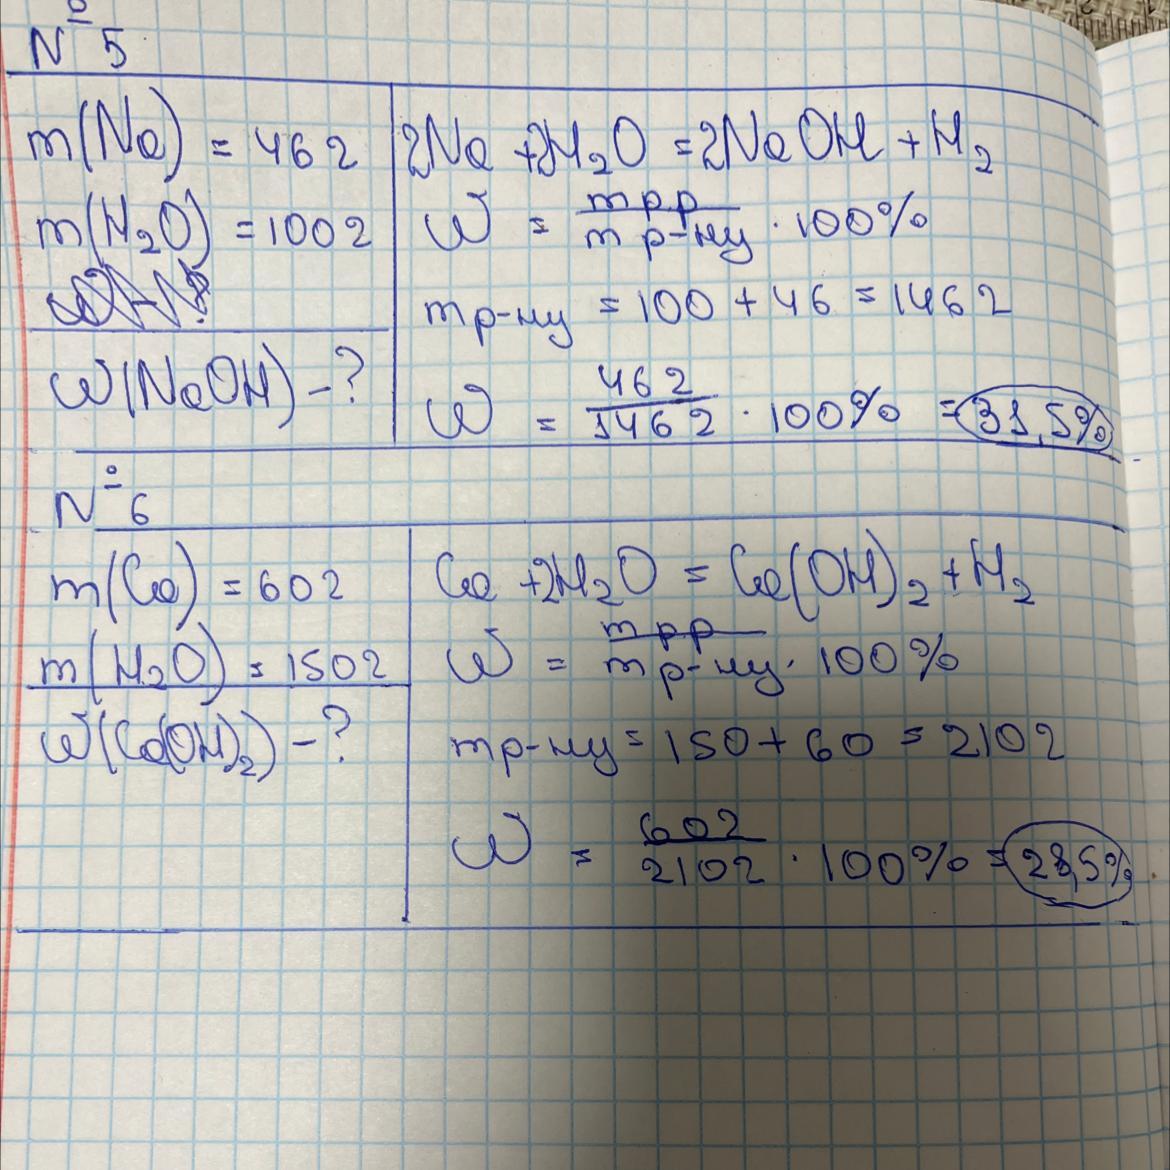 № 5
m(Na) = 46г
m(H₂O) = 100г
W(NaOH) - ?
2Na + 2H₂O = 2NaOH + H₂
W = mрр / mр-ну · 100%
mр-ну = 100 + 46 = 146г
W = 46г / 146г · 100% = 31,5%
№ 6
m(Ca) = 60г
m(H₂O) = 150г
W(Ca(OH)₂) - ?
Ca + 2H₂O = Ca(OH)₂ + H₂
W = mрр / mр-ну · 100%
mр-ну = 150 + 60 = 210г
W = 60г / 210г · 100% = 28,5%